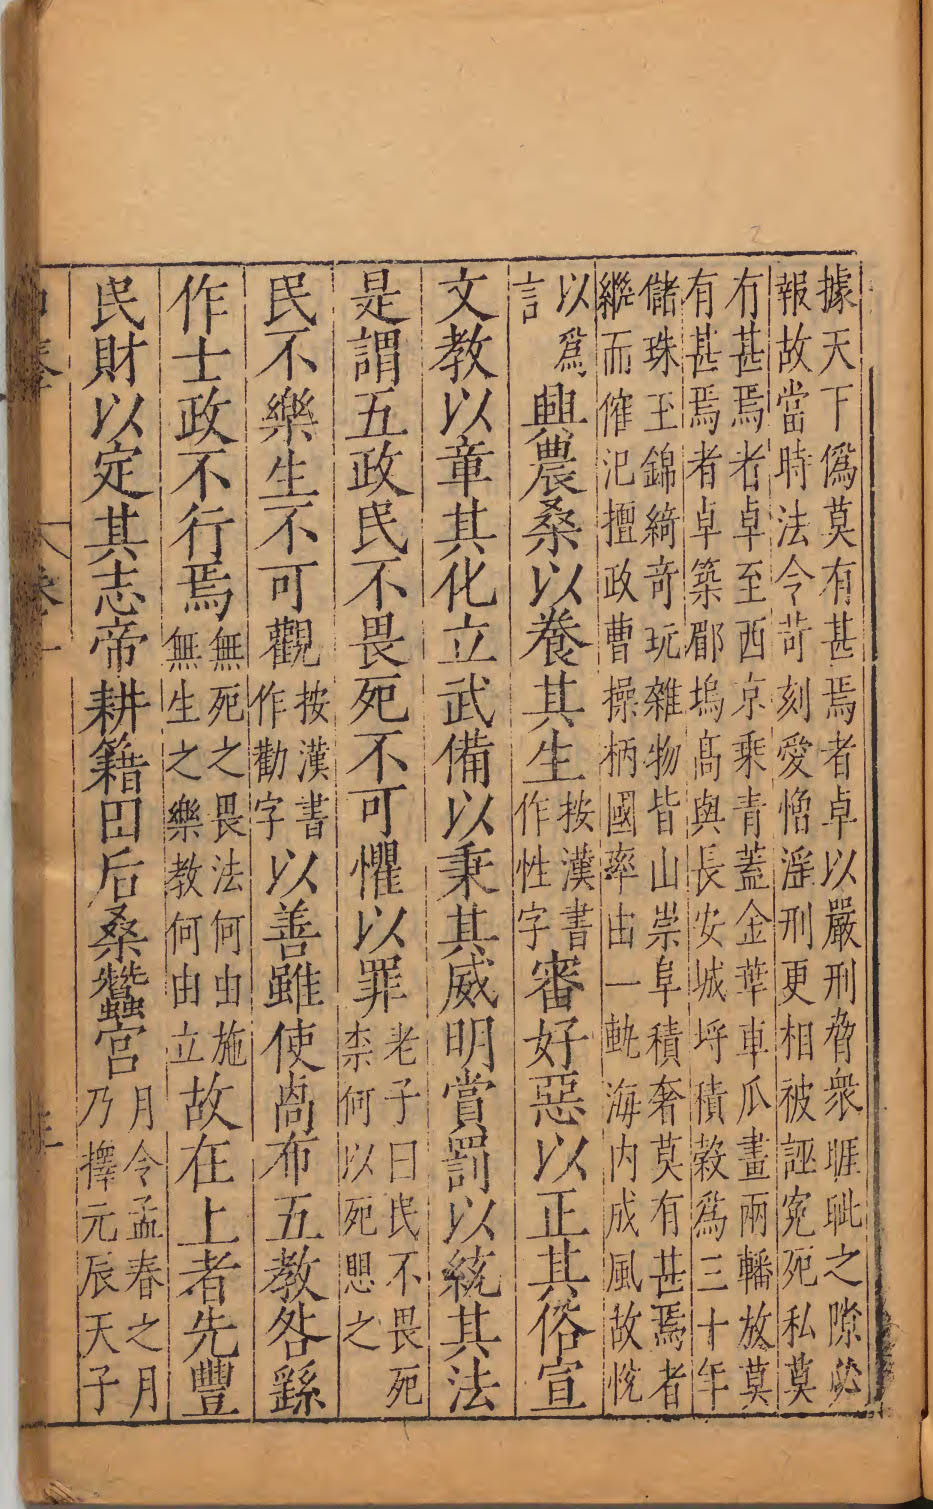 據天下僞莫有甚焉者卓以嚴刑脅衆睚眦之隙必
報故當時法令苛刻愛憎淫刑更相被誣寃死私莫
有甚焉者卓至西京乘青蓋金華車爪畫兩轓放莫
有甚焉者卓築郿塢高與長安城埒積穀爲三十年
儲珠玉錦綺竒玩雜物皆山崇阜積奢莫有甚焉者
繼而傕汜擅政曹操柄國率由一軌海内成風故悅
以爲言興農桑以養其生按漢書作性字審好惡以正其俗宣
文教以章其化立武備以秉其威明賞罰以統其法
是謂五政民不畏死不可懼以罪老子曰民不畏死柰何以死愳之
民不樂生不可觀按漢書作勸字以善雖使卨布五教咎繇
作士政不行焉無死之畏法何由施無生之樂教何由立故在上者先豐
民財以定其志帝耕籍田后桑蠶宮月令孟春之月乃擇元辰天子